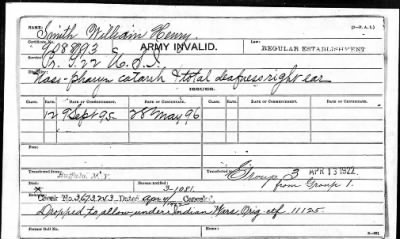 NAME: Smith William Henry
Certificate No.
ARMY INVALID.
Law:
REGULAR ESTABLISHMENT
Service:
Tr. G. 22 U.S.I.
Naso-pharyn catarrh & total deafness right ear
ISSUES.
CLASS. RATE OF COMMENCEMENT. DATE OF CERTIFICATE. CLASS. RATE OF COMMENCEMENT. DATE OF CERTIFICATE.
12 9 Sept 95 28 May 96
Died
Transferred from
Buffalo, N.Y.
Transferred
Group 3 APR 13 1922
from Group 1.
3-1081.
Dropped to allow under Indian Wars Orig ctf. 11125.
Former Roll No.